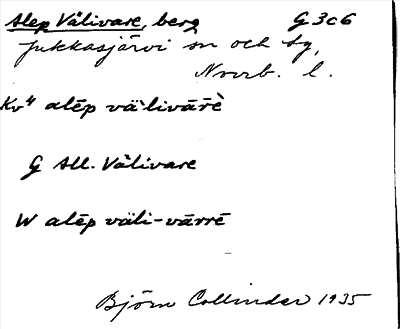 Alep Välivare, berg G 3c6
Jukkasjärvi sn och tg,
Norrb. l.
Kv4 alēp vä̀livā́rè
G All. Välivare
W alēp väli-vārrē
Björn Collinder 1935